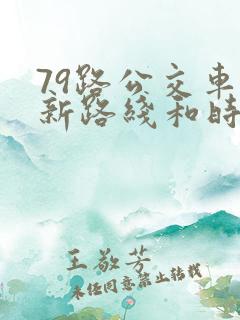 79路公交车
新路线和时
王敬芳
未经同意禁止转载